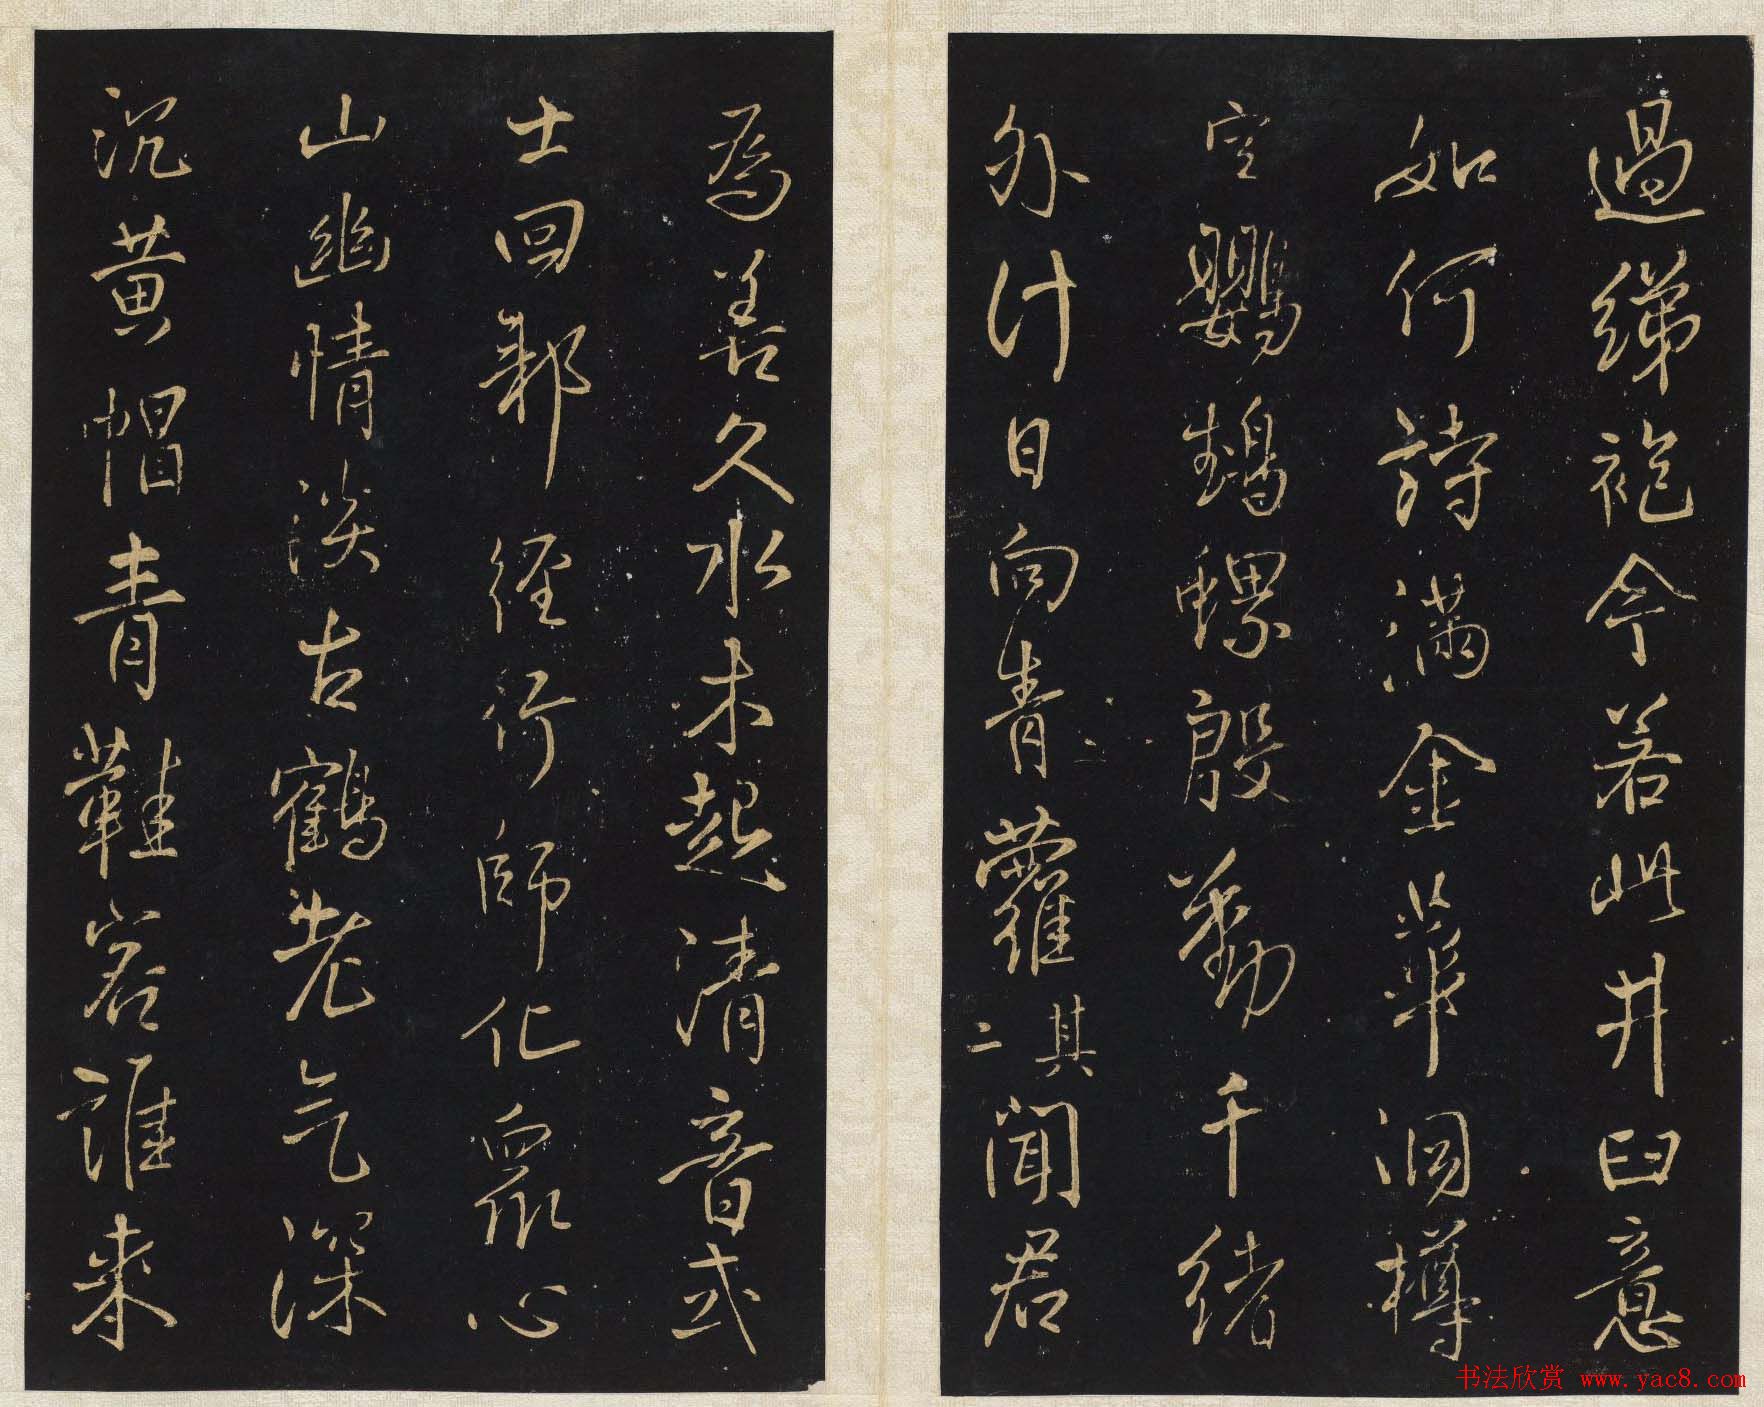 過綈袍今若此井臼意
如何詩滿金華洞樽
空鸚鵡螺殷勤千緒
外計日向青蘿其二聞君
為善久水木起清音式
士回徑行師化眾心
山幽情淡古鶴老气深
沉黃帽青鞋客誰來
书法欣赏 www.yac8.com